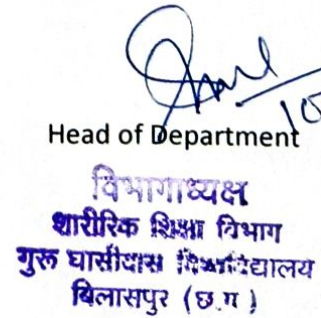 10
Head of Department
विभागाध्यक्ष
शारीरिक शिक्षा विभाग
गुरू घासीदास विश्वविद्यालय
बिलासपुर (छ.ग)